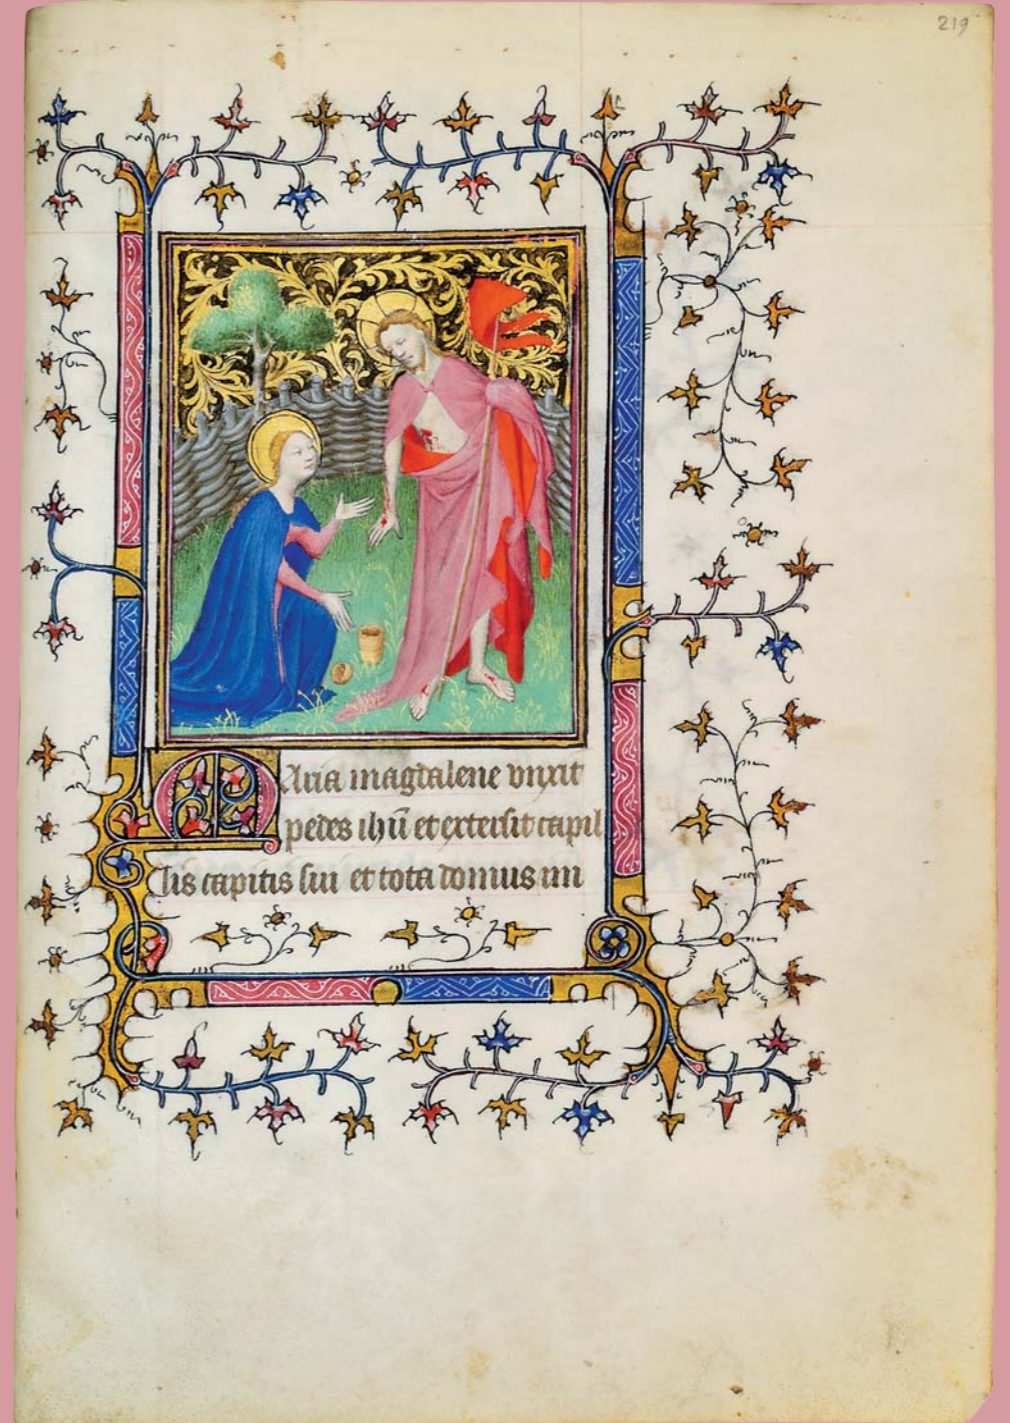 219
Maria magdalene unxit
pedes ihũ et extersit capil
lis capitis sui et tota domus im